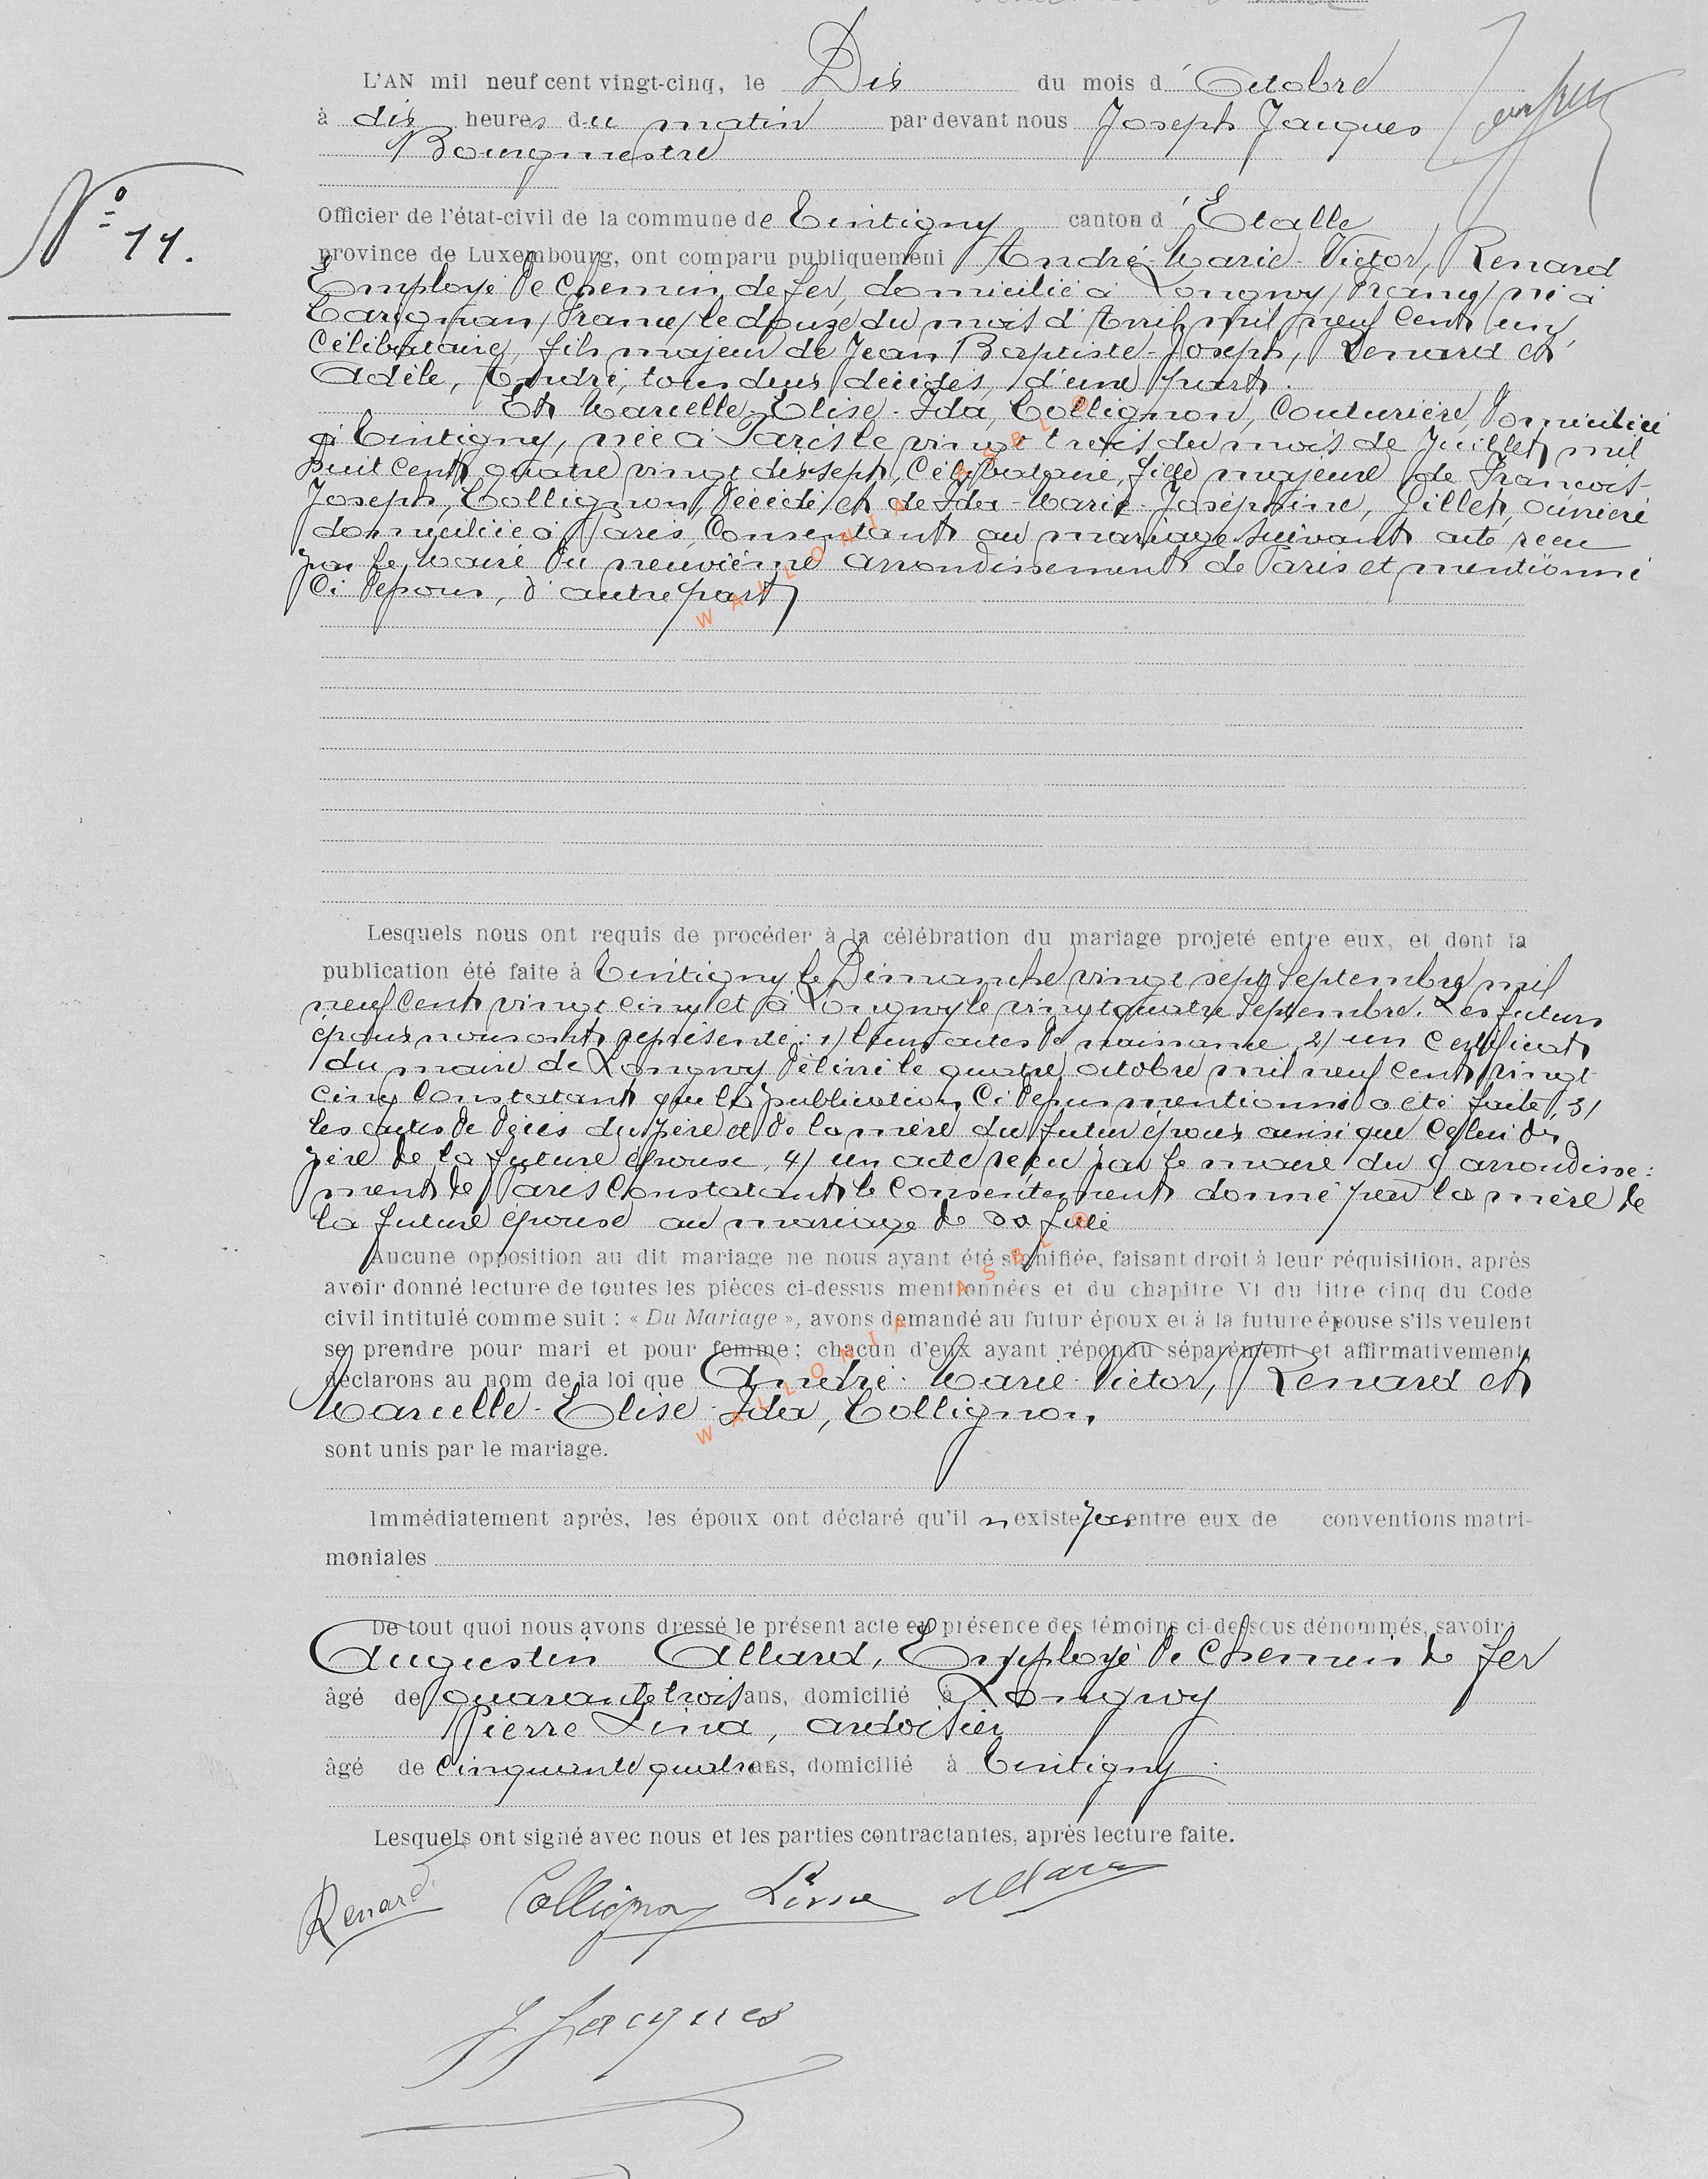 L'AN mil neuf cent vingt-cinq, le Dix du mois d'Octobre
à dix heures du matin par devant nous Joseph Jacques
Bourgmestre
N° 11.
Officier de l'état-civil de la commune de Tintigny canton d'Etalle
province de Luxembourg, ont comparu publiquement André-Marie-Victor, Renard
Employé de chemin de fer, domicilié à Longwy /France/ né à
Carignan /France/ le douze du mois d'Avril mil neuf cent un,
Célibataire, fils majeur de Jean Baptiste-Joseph, Renard et
Adèle, André, tous deux décédés, d'une part.
Et Marcelle-Elise-Ida, Collignon, Couturière, Domiciliée
à Tintigny, née à Paris le vingt trois du mois de Juillet mil
huit cent quatre vingt dix sept, Célibataire, fille majeure de François-
Joseph, Collignon, Décédé et de Ida-Marie-Joséphine, Gillet, ouvrière
domiciliée à Paris, Consentant au mariage suivant acte reçu
par le Maire du neuvième arrondissement de Paris et mentionné
Ci dessous, d'autre part,
Lesquels nous ont requis de procéder à la célébration du mariage projeté entre eux, et dont la
publication été faite à Tintigny le Dimanche vingt sept Septembre mil
neuf cent vingt cinq et à Longwy le vingt quatre Septembre. Les futurs
époux nous ont représenté: 1/ leurs actes de naissance 2/ un Certificat
du maire de Longwy délivré le quatre octobre mil neuf cent vingt
cinq Constatant que la publication Ci dessus mentionné a été faite, 3/
les actes de décès du père et de la mère du futur époux ainsi que Celui du
père de la future épouse, 4/ un acte reçu par le maire du 9 arrondisse:
ment de Paris Constatant le Consentement donné par la mère de
la future épouse au mariage de sa fille
Aucune opposition au dit mariage ne nous ayant été signifiée, faisant droit à leur réquisition, après
avoir donné lecture de toutes les pièces ci-dessus mentionnées et du chapitre VI du titre cinq du Code
civil intitulé comme suit : « Du Mariage », avons demandé au futur époux et à la future épouse s'ils veulent
se prendre pour mari et pour femme; chacun d'eux ayant répondu séparément et affirmativement,
déclarons au nom de la loi que André-Marie-Victor, Renard et
Marcelle-Elise-Ida, Collignon,
sont unis par le mariage.
Immédiatement après, les époux ont déclaré qu'il n existe pas entre eux de conventions matri-
moniales
De tout quoi nous avons dressé le présent acte en présence des témoins ci-dessous dénommés, savoir:
Augustin Allard, Employé de Chemin de fer
âgé de quarante trois ans, domicilié à Longwy
Pierre Lind, ardoisier
âgé de cinquante quatre ans, domicilié à Tintigny.
Lesquels ont signé avec nous et les parties contractantes, après lecture faite.
Renard Collignon Allard
J Jacques
WALLONIA ASBL ©
WALLONIA ASBL ©